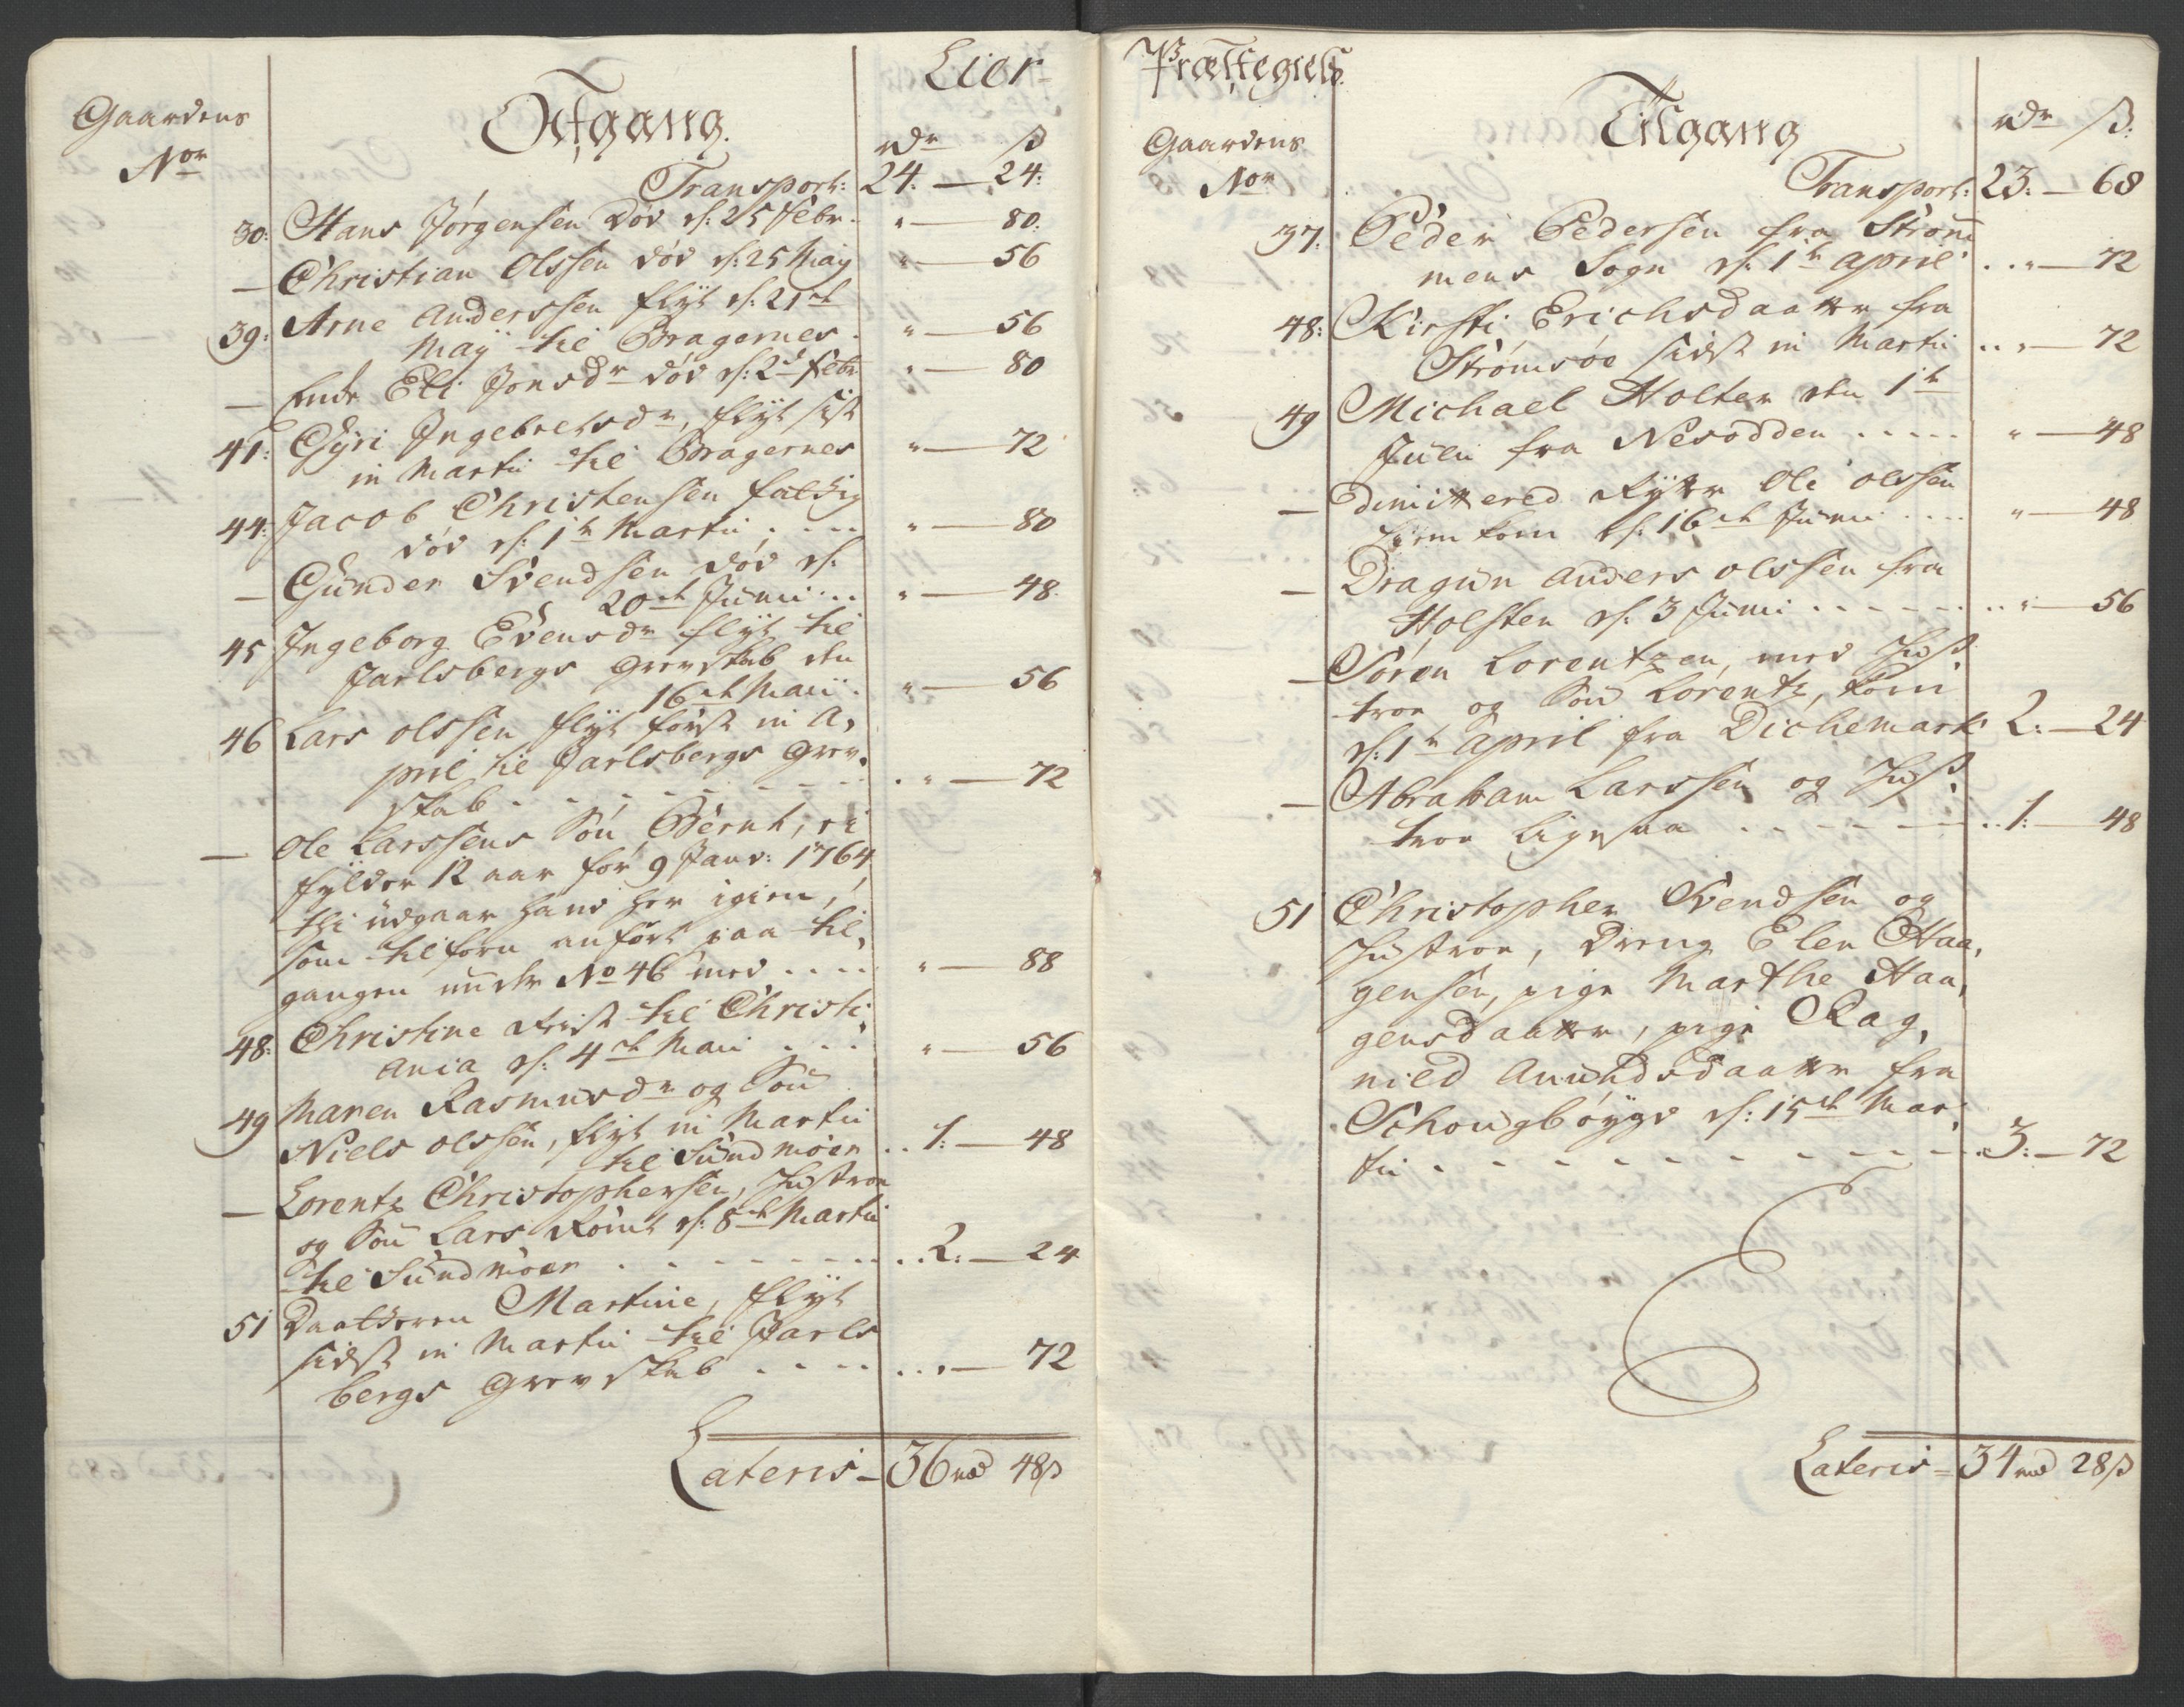 Lier-
Gaardens
Nor
Afgang.
rdr ß
Transport: 24. — 24:
30: Hans Jørgensen død d: 25 Febr. " — 80.
— Christian Olssen død d: 25 May " — 56
39: Arne Anderssen flyt d: 21de
May til Bragernes. " — 56
— Enke Eli Jonsdr død d: 2d Febr " — 80
41: Gÿri Ingebretsdr, flyt sist
in Martii til Bragernes " — 72
44: Jacob Christensen fattig
død d: 1te Martii, .... " — 80
— Gunder Svendsen død d:
20de Junii ... " — 48.
45 Ingeborg Evensdr flyt til
Jarlsbergs Grevskab den
16de Maii. " — 56
46 Lars olssen flyt først in A,
pril til Jarlsbergs Grev,
skab . . . . . " — 72
— Ole Larssens Søn, Bernt, ei
fylder 12 aar før 9 Janv: 1764,
thi udgaar hand her igien,
som tilforn anført paa til,
gangen under No 46 med .... " — 88
48: Christine Reist til Christi,
ania d: 4de Maii .... " — 56
49 Maren Rasmusdr og Søn
Niels olssen, flyt in Martii
til Sundmöer .. 1: — 48
— Lorentz Christophersen, Hustroe
og Søn Lars Römt d: 8de Martii
til Sundmöer . . . . . . 2: — 24
51 Daatteren Martine, flyt
sidst in Martii til Jarls
bergs Grevskab . . . . " — 72
Lateris — 36 rd 48ß
Præstegield.
Gaardens
Nor
Tilgang
rdr ß.
Transport: 23. — 68
37: Peder Pedersen fra Strøm
mens Sogn d: 1te April . . " — 72
48: Kirsti Erichsdaatter fra
Strømsøe sidst in Martii .. " — 72
49 Michael Holter den 1te
Julii fra Nesodden ..... " — 48
— Dimittered Rytter Ole olssen
hiemkom d: 16de Junii .... " — 48
— Dragun Anders olssen fra
Holsten d: 3 Junii . . . . . " — 56
— Søren Lorentzen, med Hus
troe og Søn Lorentz, kom
d: 1te April fra Dichemark 2: — 24
— Abraham Larssen og Hus,
troe ligesaa . . . . . . 1: — 48
51 Christopher Svendsen og
Hustroe, Dreng Elen Haa,
gensen, pige Marthe Haa,
gensdaatter, pige Rag,
nild Amundsdaatter fra
Schougbøygd d: 15de Mar,
tii . . . . . . . . . . 3: — 72
Lateris = 34 rd 28ß